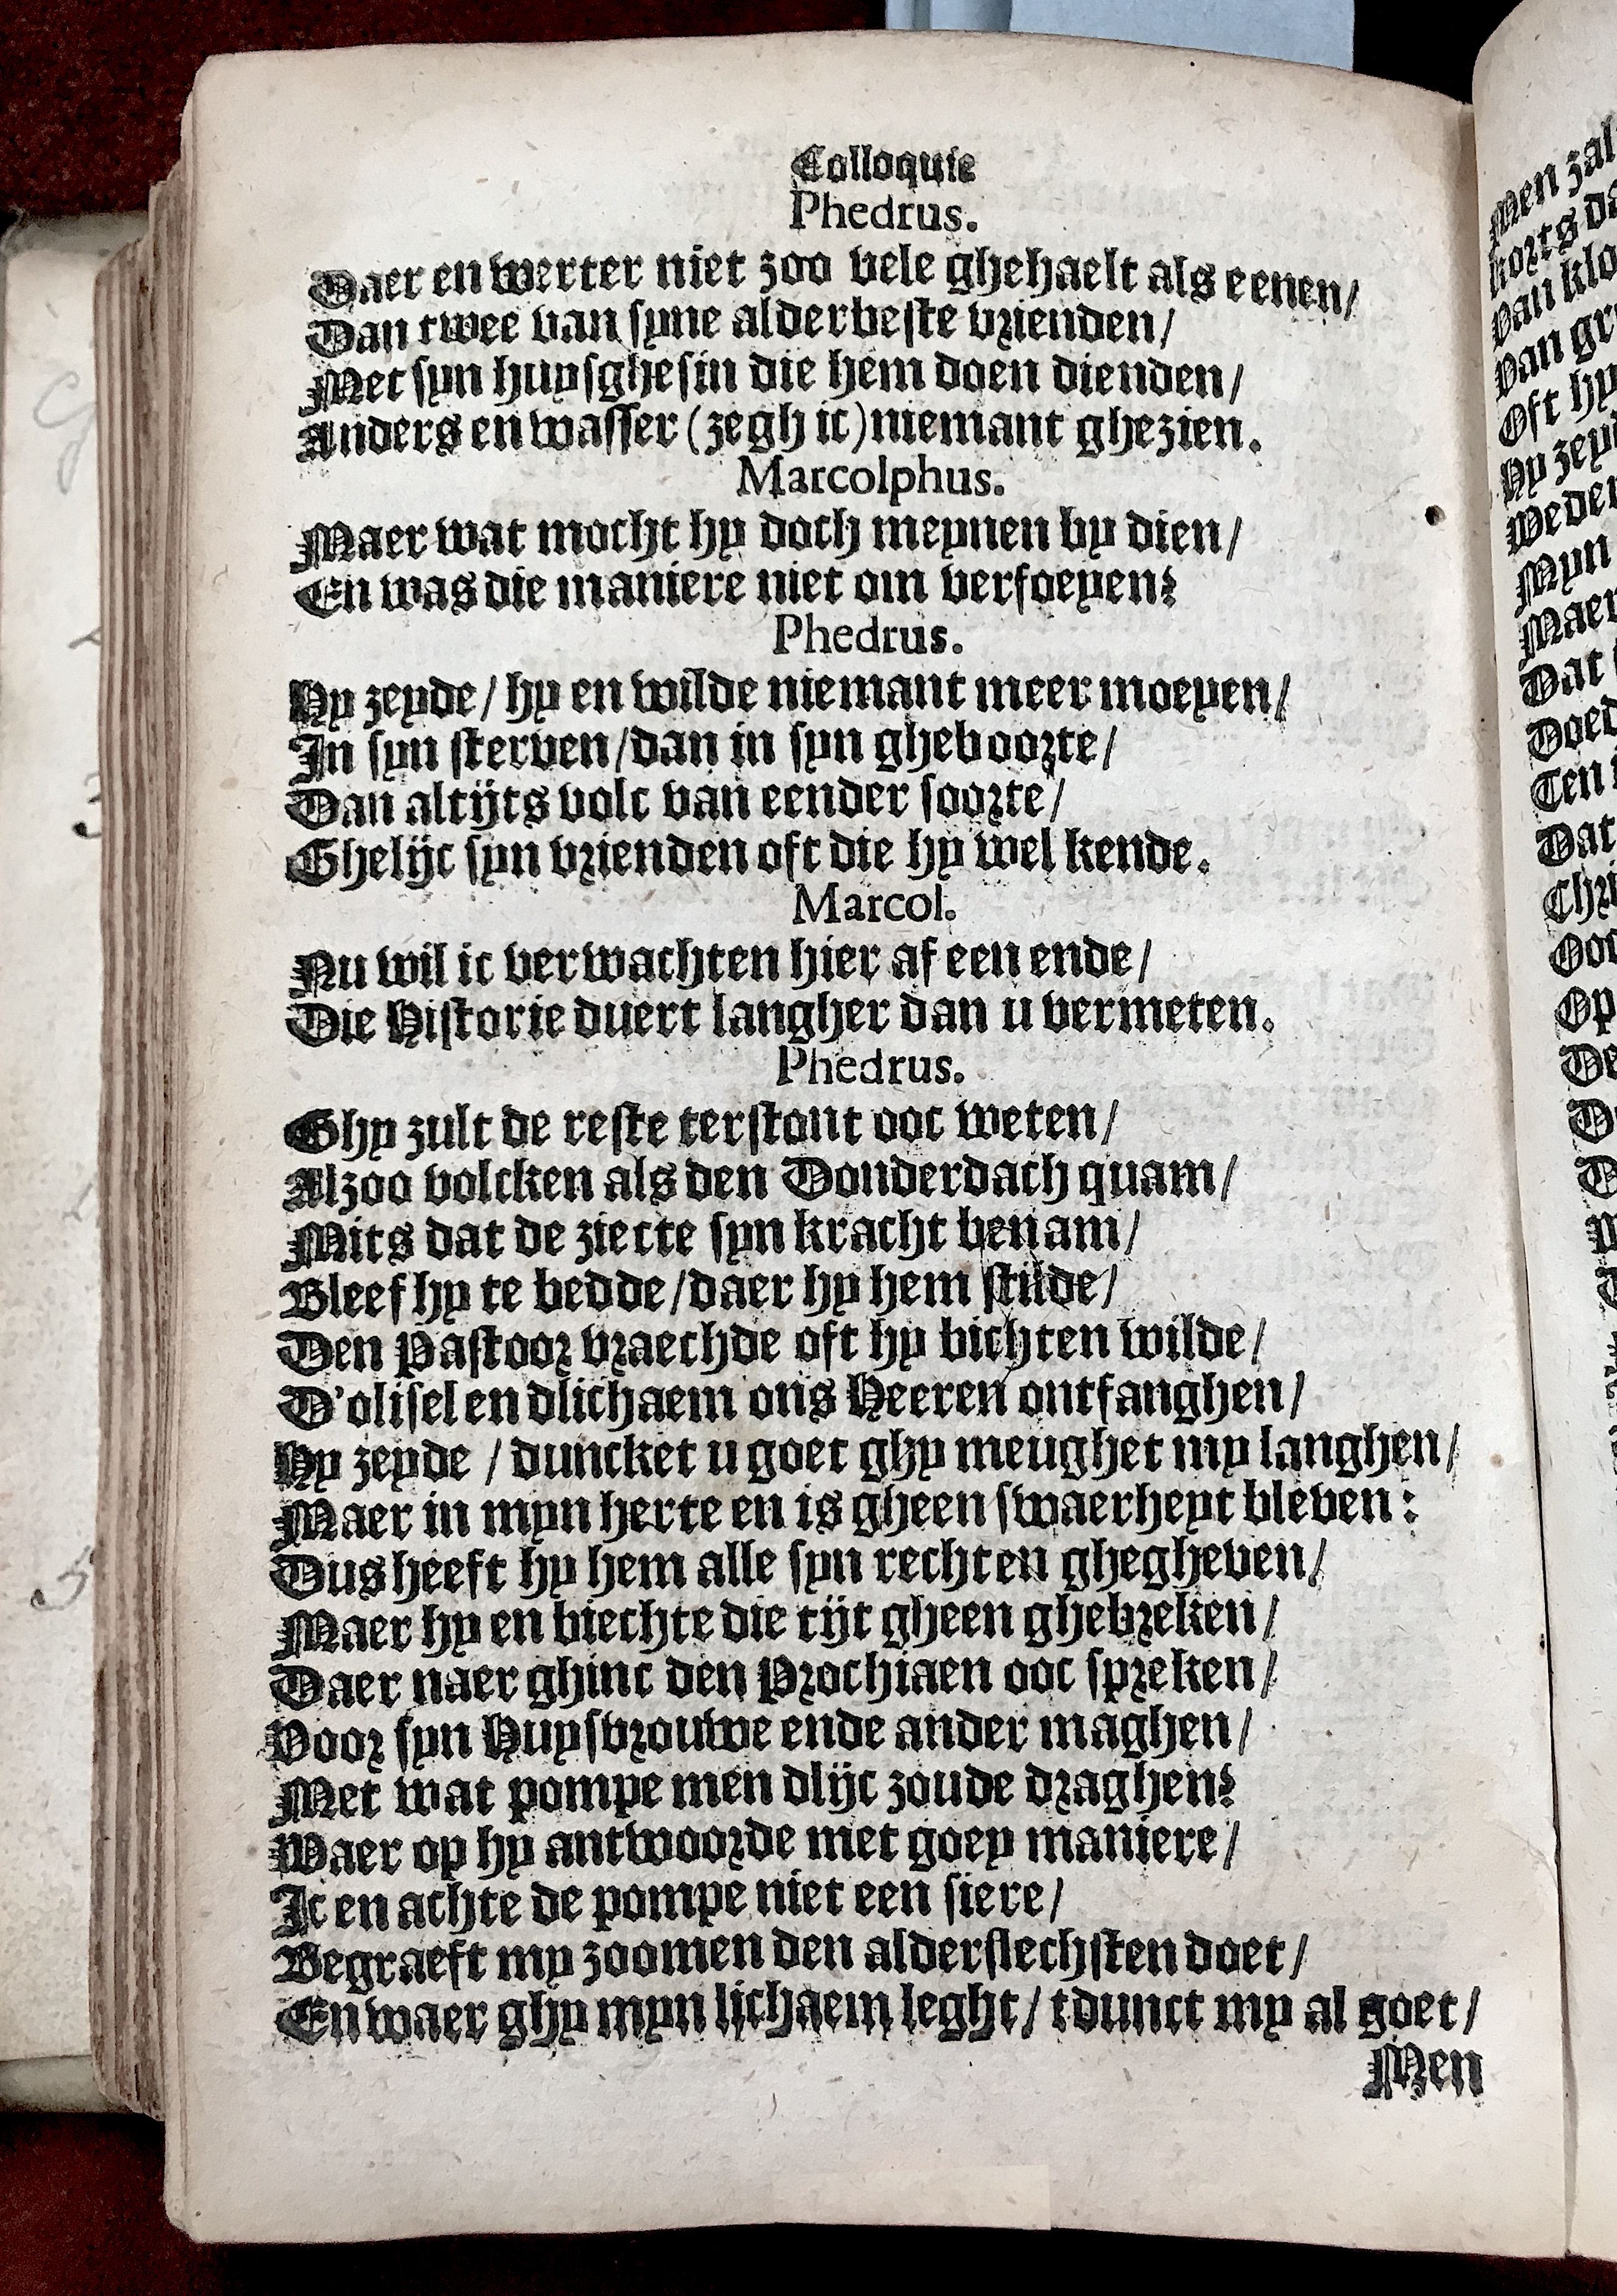 Colloquie
Phedrus.
Daer en werter niet zoo vele ghehaelt als eenen/
Dan twee van syne alderbeste vrienden/
Met syn huysghesin die hem doen dienden/
Anders en wasser (zegh ic) niemant ghezien.
Marcolphus.
Maer wat mocht hy doch meynen by dien/
En was die maniere niet om verfoeyen?
Phedrus.
Hy zeyde/ hy en wilde niemant meer moeyen/
In syn sterven/dan in syn gheboorte/
Dan altijts volc van eender soorte/
Ghelijc syn vrienden oft die hy wel kende.
Marcol.
Nu wil ic verwachten hier af een ende/
Die Historie duert langher dan u vermeten.
Phedrus.
Ghy zult de reste terstont ooc weten/
Alzoo volcken als den Donderdach quam/
Mits dat de ziecte syn kracht benam/
Bleef hy te bedde/daer hy hem stilde/
Den Pastoor vraechde oft hy bichten wilde/
D'olisel en dlichaem ons Heeren ontfanghen/
Hy zeyde / duncket u goet ghy meughet my langhen/
Maer in myn herte en is gheen swaerheyt bleven:
Dus heeft hy hem alle syn rechten ghegheven/
Maer hy en biechte die tijt gheen ghebreken/
Daer naer ghinc den Prochiaen ooc spreken/
Voor syn Huysvrouwe ende ander maghen/
Met wat pompe men dlijc zoude draghen?
Waer op hy antwoorde met goey maniere/
Ic en achte de pompe niet een siere/
Begraeft my zoomen den alderslechsten doet/
En waer ghy myn lichaem leght/ tdunct my al goet/
Men